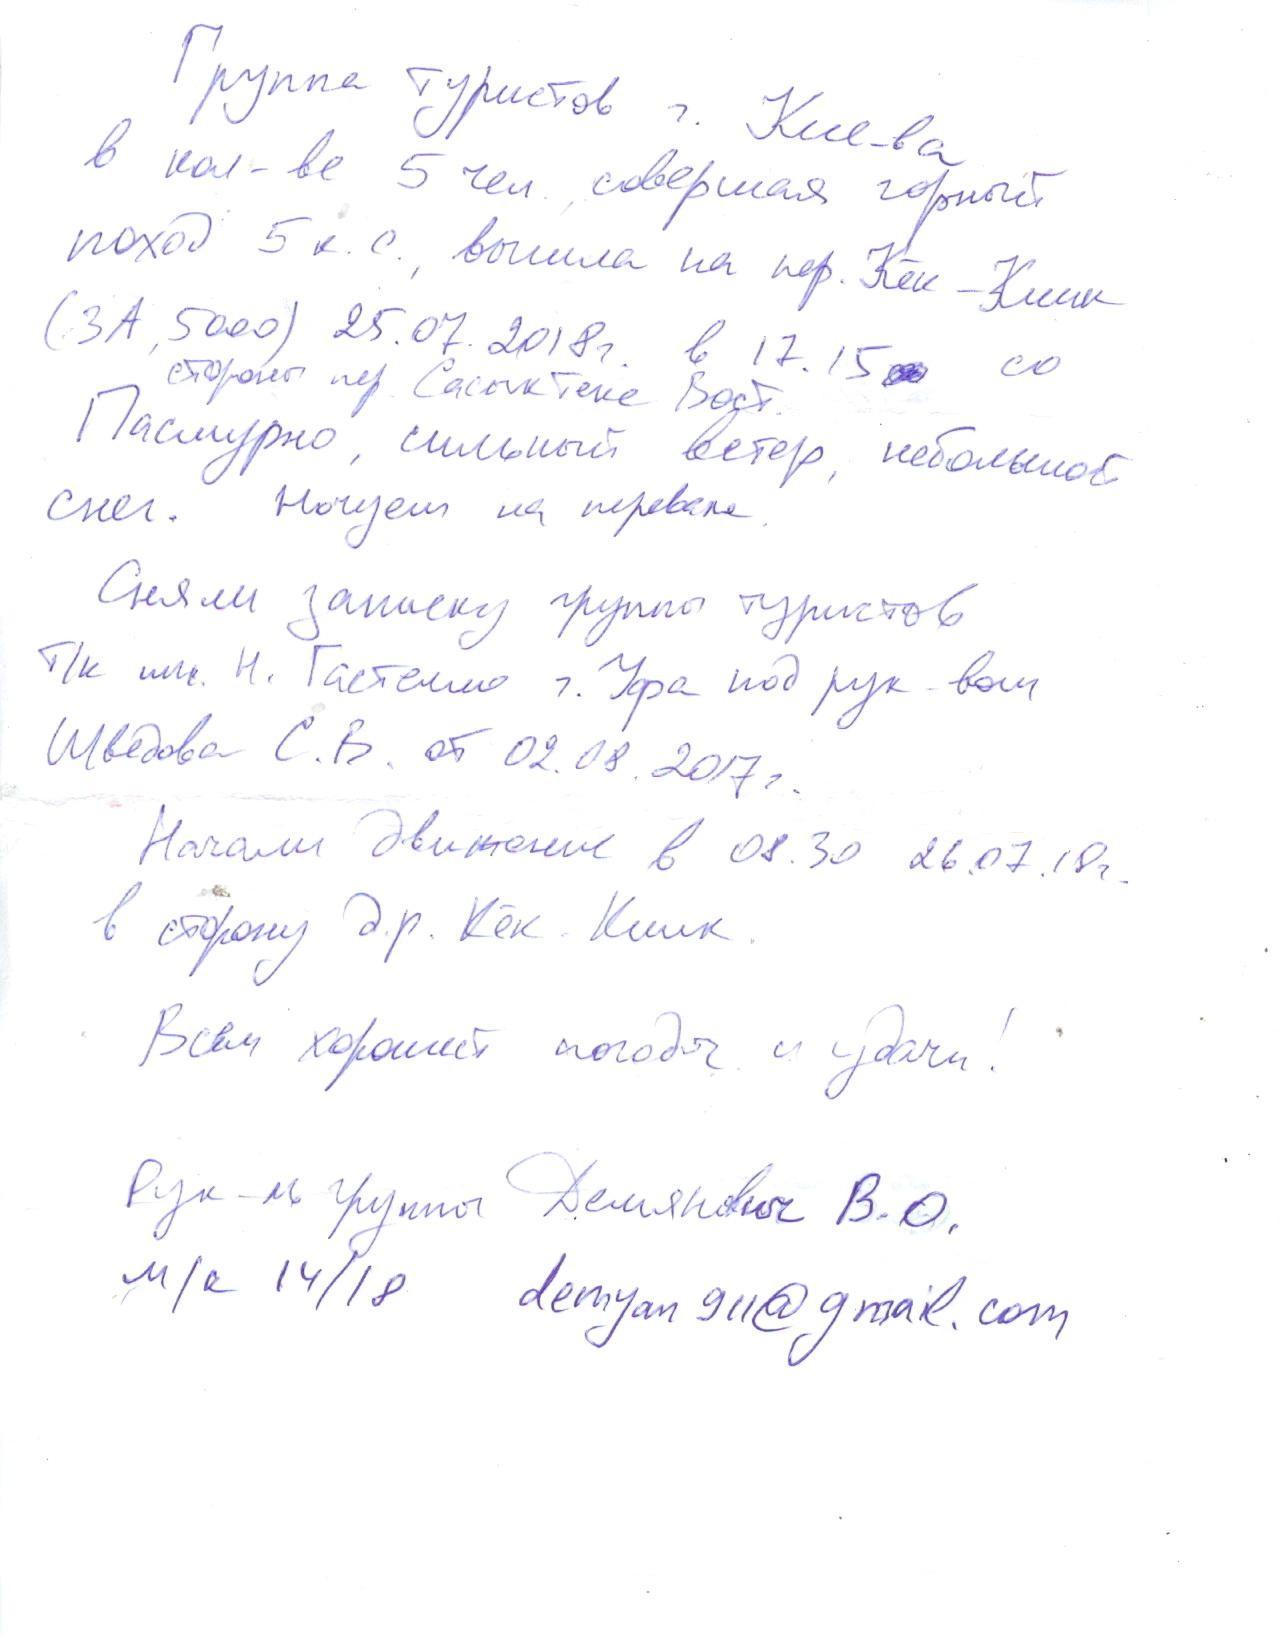 Группа туристов г. Киева
в кол-ве 5 чел., совершая горный
поход 5 к.с., вышла на пер. Кёк-Киик
(3А, 5000) 25.07.2018г. в 17.15 со
стороны пер. Сасыктеке Вост.
Пасмурно, сильный ветер, небольшой
снег. Ночуем на перевале.
Сняли записку группы туристов
т/к им. Н. Гастелло г. Уфа под рук-вом
Шведова С.В. от 02.08.2017г.
Начали движение в 08.30 26.07.18г.
в сторону д.р. Кёк-Киик.
Всем хорошей погоды и удачи!
Рук-ль группы Демянович В.О.
м/к 14/18 demyan911@gmail.com